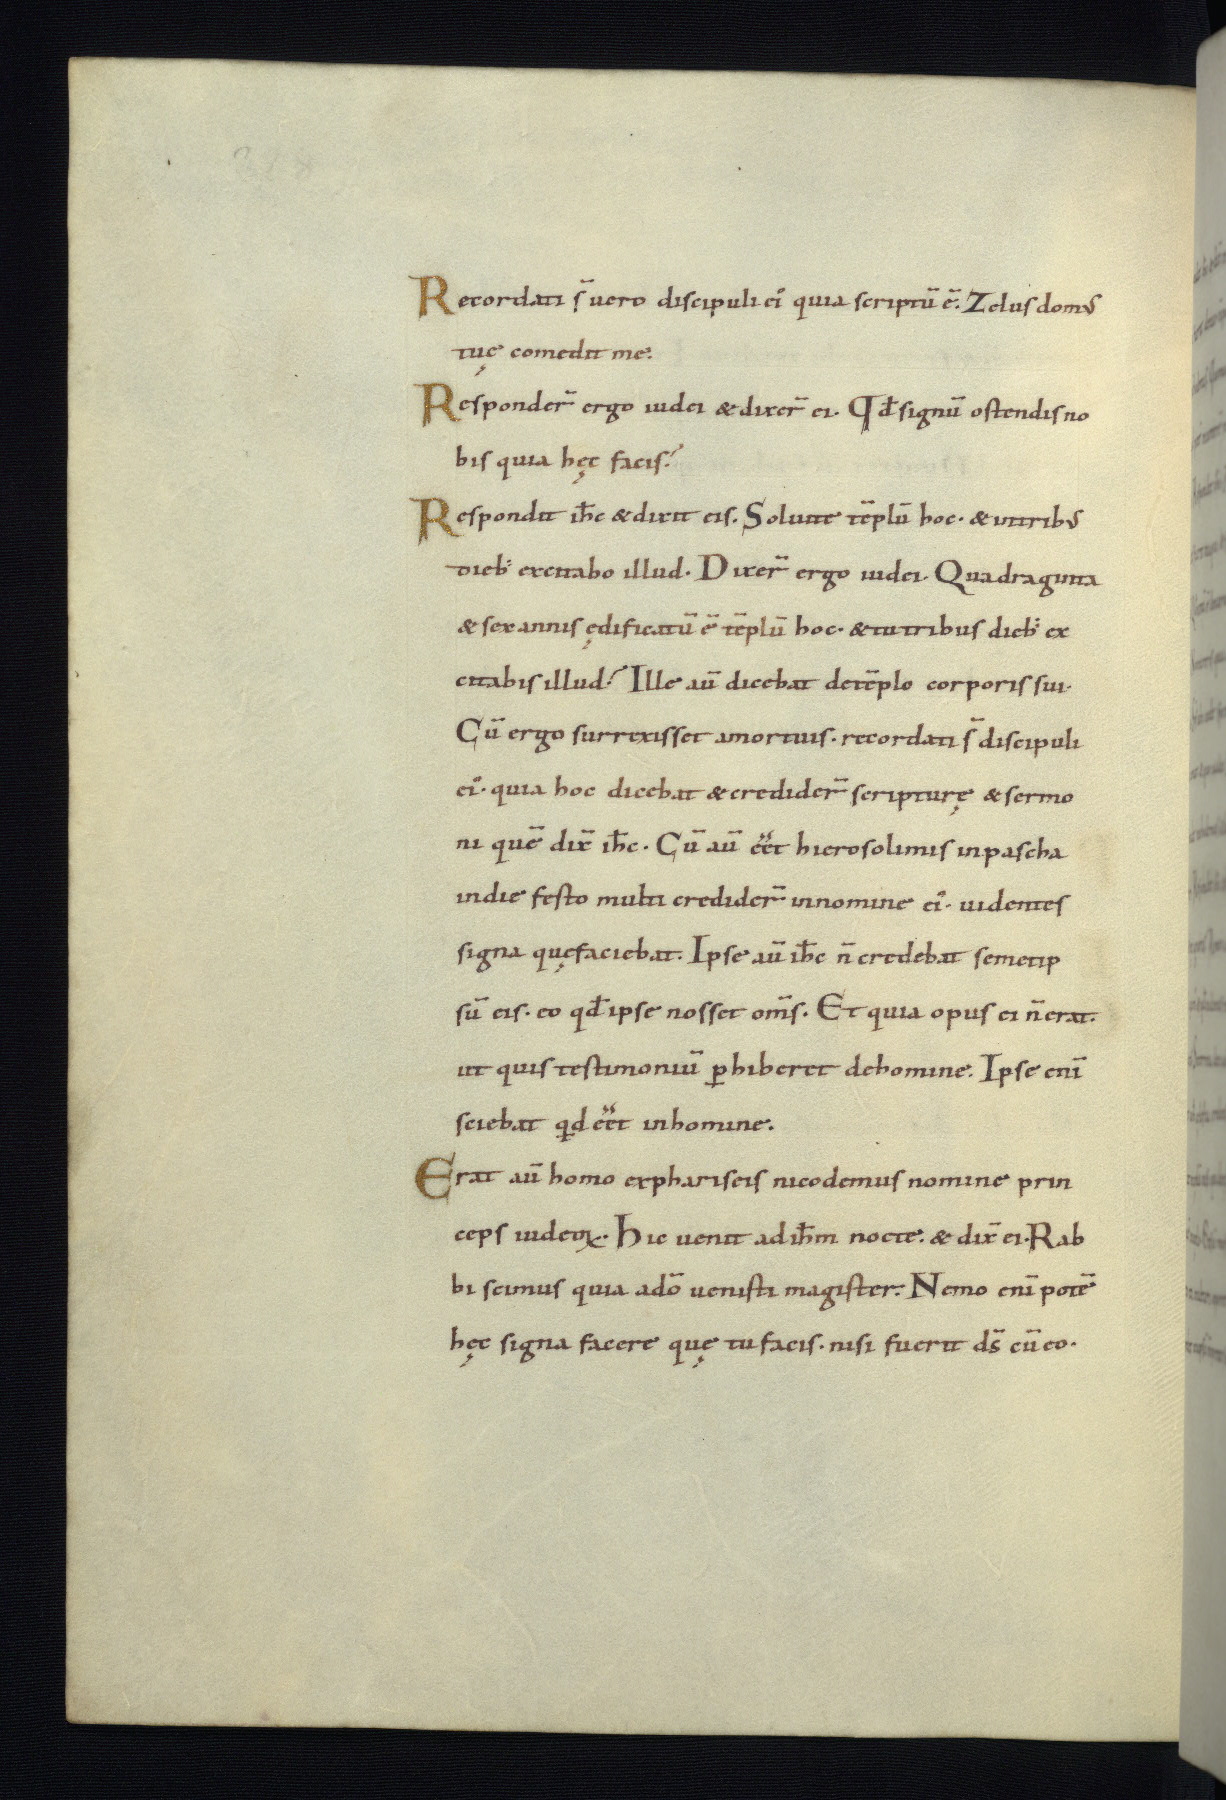 Recordati s̄ uero discipuli ei᷒ quia scriptū ē. Zelus domus
tuę comedit me.
Responder̄ ergo iudei & dixer̄ ei. Qd̄ signū ostendis no
bis quia hęc facis?
Respondit ih̄c & dixit eis. Soluite tēplū hoc. & intribus
dieb; excitabo illud. Dixer̄ ergo iudei. Quadraginta
& sex annis ędificatū ē tēplū hoc. & tu tribus dieb; ex
citabis illud? Ille aū dicebat detēplo corporis sui.
Cū ergo surrexisset amortuis. recordati s̄ discipuli
ei᷒. quia hoc dicebat & credider̄ scripturę & sermo
ni quē dix̄ ih̄c. Cū aū eēt hierosolimis inpascha
indie festo multi credider̄ innomine ei᷒. uidentes
signa quęfaciebat. Ipse aū ih̄c n̄ credebat semetip
sū eis. eo qd̄ ipse nosset om̄s. Et quia opus ei n̄ erat.
ut quis testimoniū ꝑhiberet dehomine. Ipse enī
sciebat qd eēt inhomine.
Erat aū homo expharisęis nicodemus nomine prin
ceps iudeoꝝ. Hic uenit adih̄m nocte. & dix̄ ei. Rab
bi scimus quia adō uenisti magister. Nemo enī potē
hęc signa facere quę tu facis. nisi fuerit ds̄ cū eo.